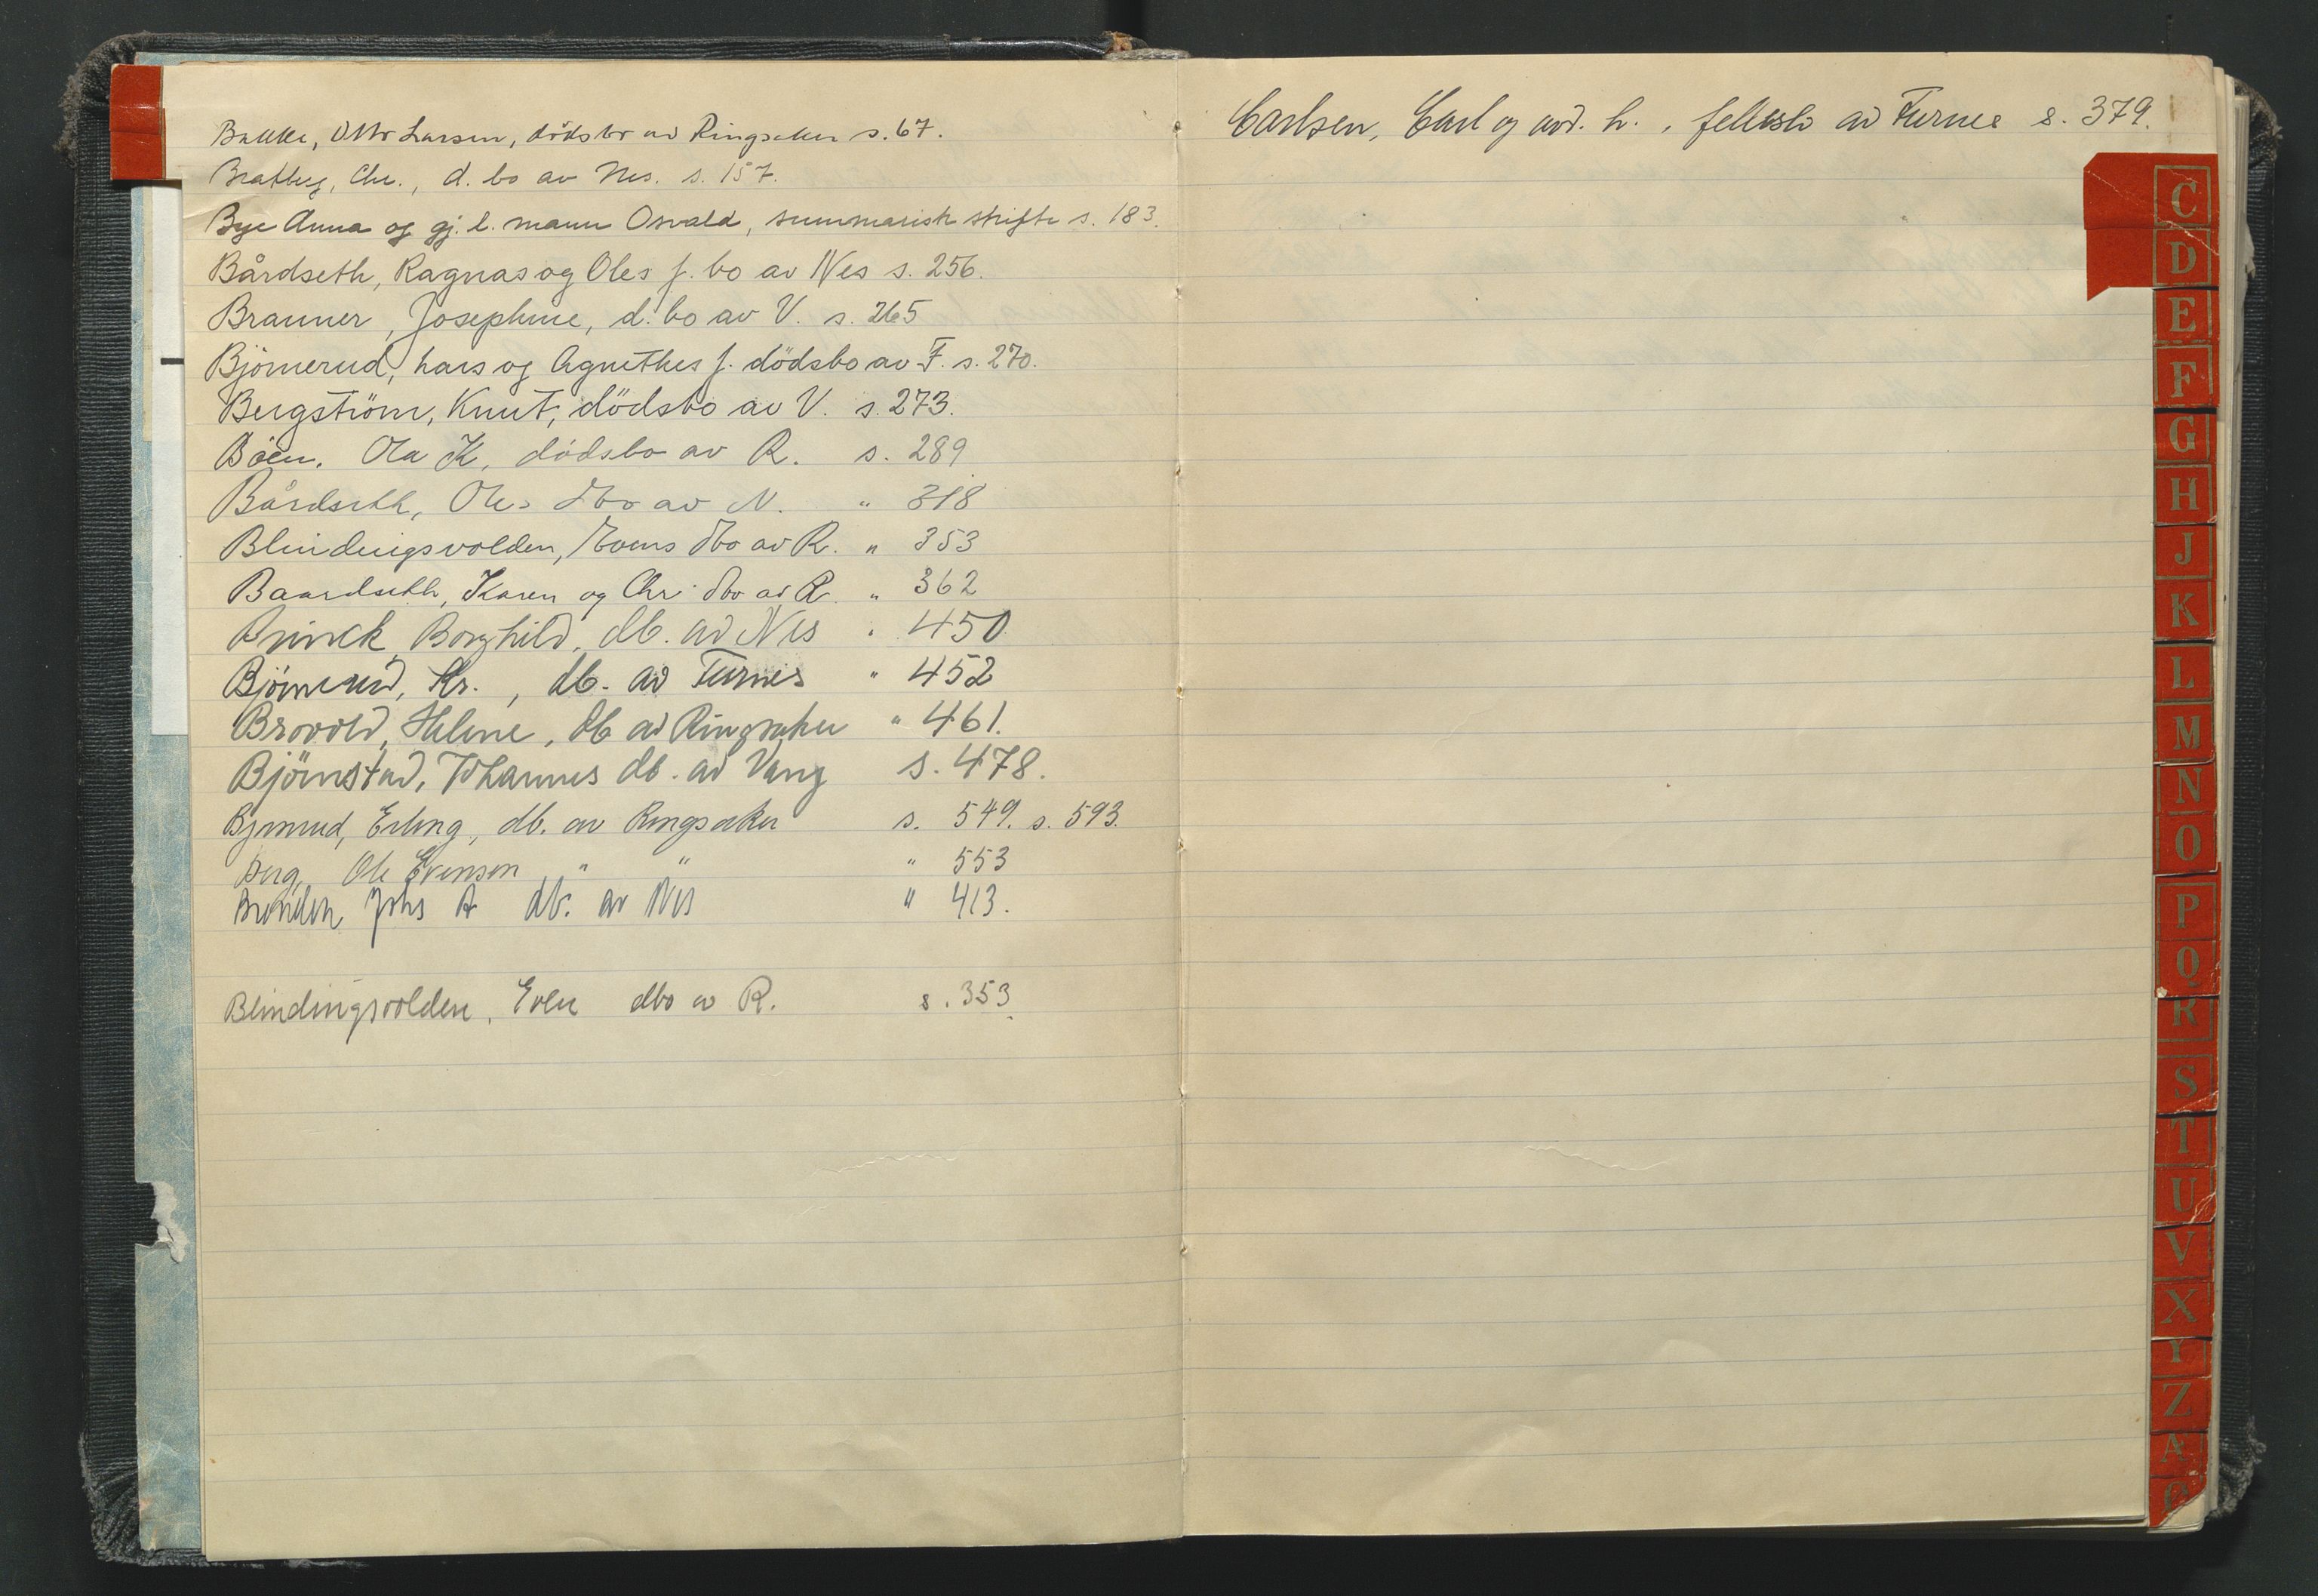 Bakke, Otto Larsen, dödsbo av Ringsaker s. 67.
Bratberg, Chr., d. bo av Nes. s. 157.
Bye Anna og gj. l. mann Osvald, summarisk skifte s. 183.
Bårdseth, Ragnas og Oles f. bo av Nes s. 256.
Branner, Josephine, d. bo av V. s. 265
Björnerud, Lars og Agnethes f. dödsbo av F. s. 270.
Bergström, Knut, dödsbo av V. s. 273.
Böen, Ola K, dödsbo av R. s. 289
Bårdseth, Oles dbo av N. " 318
Blindingsvolden, Evens dbo av R. " 353
Baardseth, Karen og Chr. dbo av R. " 362
Brinck, Borghild, db. av Nes " 450
Björnerud, Kr., db. av Furnes " 452
Brovold, Helene, db av Ringsaker " 461.
Björnstad, Johannes db. av Vang s. 478.
Bjørnerud, Erling, db. av Ringsaker s. 549. s. 593.
Berg, Ole Evensen " " " 553
Johs A db. av Nes " 413.
Blindingsvolden, Even dbo av R. s. 353
Carlsen, Carl og avd. h., fellesbo av Furnes s. 379.
C
D
E
F
G
H
J
K
L
M
N
O
P
Q
R
S
T
U
V
X
Y
Z